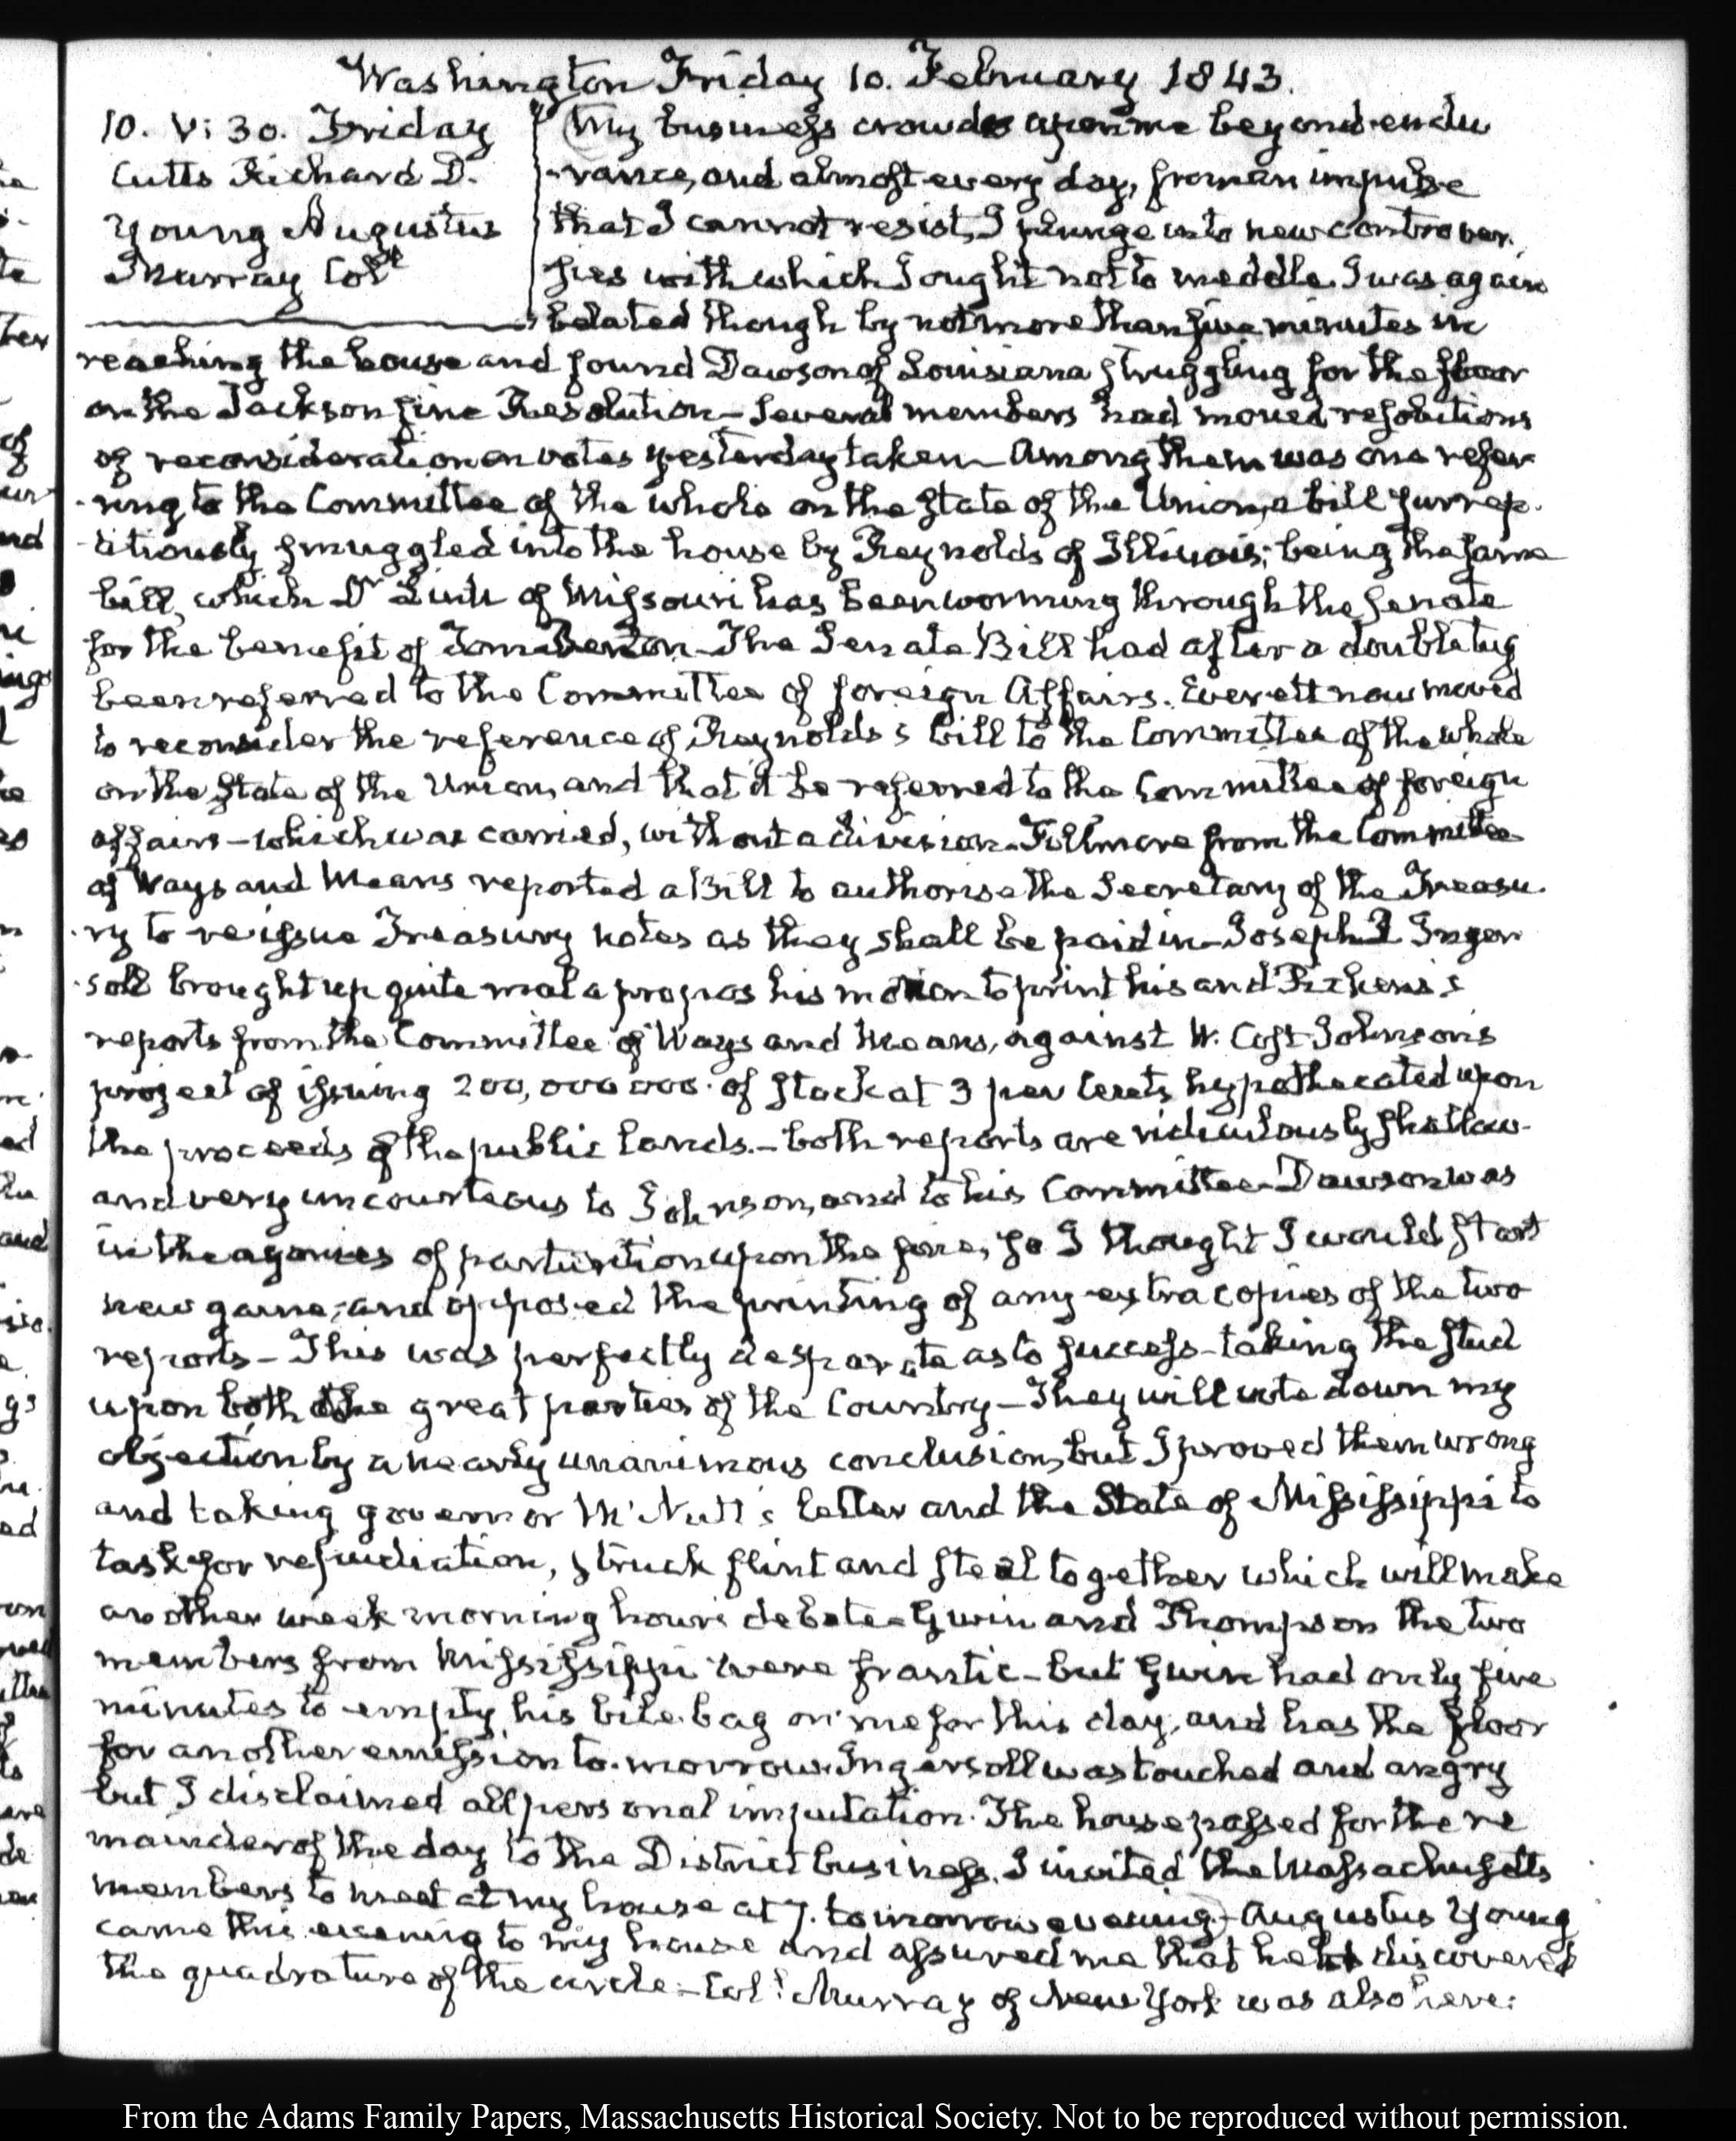 Washington Friday 10. February 1843.
10. V: 30. Friday
Cutts Richard D.
Young Augustus
Murray Col.t
My business crowds upon me beyond endu
-rance, and almost every day, from an impulse
that I cannot resist, I plunge into new controver.
sies with which I ought not to meddle. I was again
belated though by not more than five minutes in
reaching the house and found Dawson of Louisiana struggling for the floor
on the Jackson fine Resolution_ Several members had moved resolutions
of reconsideration on votes yesterday taken_ Among them was one refer
-ring to the Committee of the whole on the State of the Union, a bill surrep.
-titiously smuggled into the house by Reynolds of Illinois; being the same
bill, which Dr Linn of Missouri has been worming through the Senate
for the benefit of Tom Benton_ The Senate Bill had after a double tug
been referred to the Committee of foreign Affairs. Everett now moved
to reconsider the reference of Reynolds's bill to the Committee of the whole
on the State of the Union, and that it be referred to the Committee of foreign
affairs – which was carried, without a division. Fillmore from the Committee
of Ways and Means reported a Bill to authorise the Secretary of the Treasu.
-ry to reissue Treasury notes as they shall be paid in_ Joseph R Inger
-soll brought up quite mal a propos his motion to print his and Pickens's
reports from the Committee of Ways and Means, against W. Cost Johnson's
project of issuing 200,000000. of Stock at 3 per Cents, hypothecated upon
the proceeds of the public lands. – both reports are ridiculously shallow
and very uncourteous to Johnson, and to his Committee_ Dawson was
in the agonies of parturition upon the fine, so I thought I would start
new game, and opposed the printing of any extra copies of the two
reports – This was perfectly desperate as to success – taking the stud
upon both the great parties of the Country – They will vote down my
objection by a nearly unanimous conclusion, but I proved them wrong
and taking governor McNutt's letter and the State of Mississippi to
task for repudiation, struck flint and steel together which will make
another week morning hour's debate – Gwin and Thompson the two
members from Mississippi were frantic – but Gwin had only five
minutes to empty his bile-bag on me for this day, and has the floor
for another emission to-morrow. Ingersoll was touched and angry
but I disclaimed all personal imputation. The house passed for the re
mainder of the day to the District business. I invited the Massachusetts
members to meet at my house at 7. tomorrow evening – Augustus Young
came this evening to my house and assured me that he discovered
the quadrature of the circle – Col.t Murray of New York was also here.
From the Adams Family Papers, Massachusetts Historical Society. Not to be reproduced without permission.